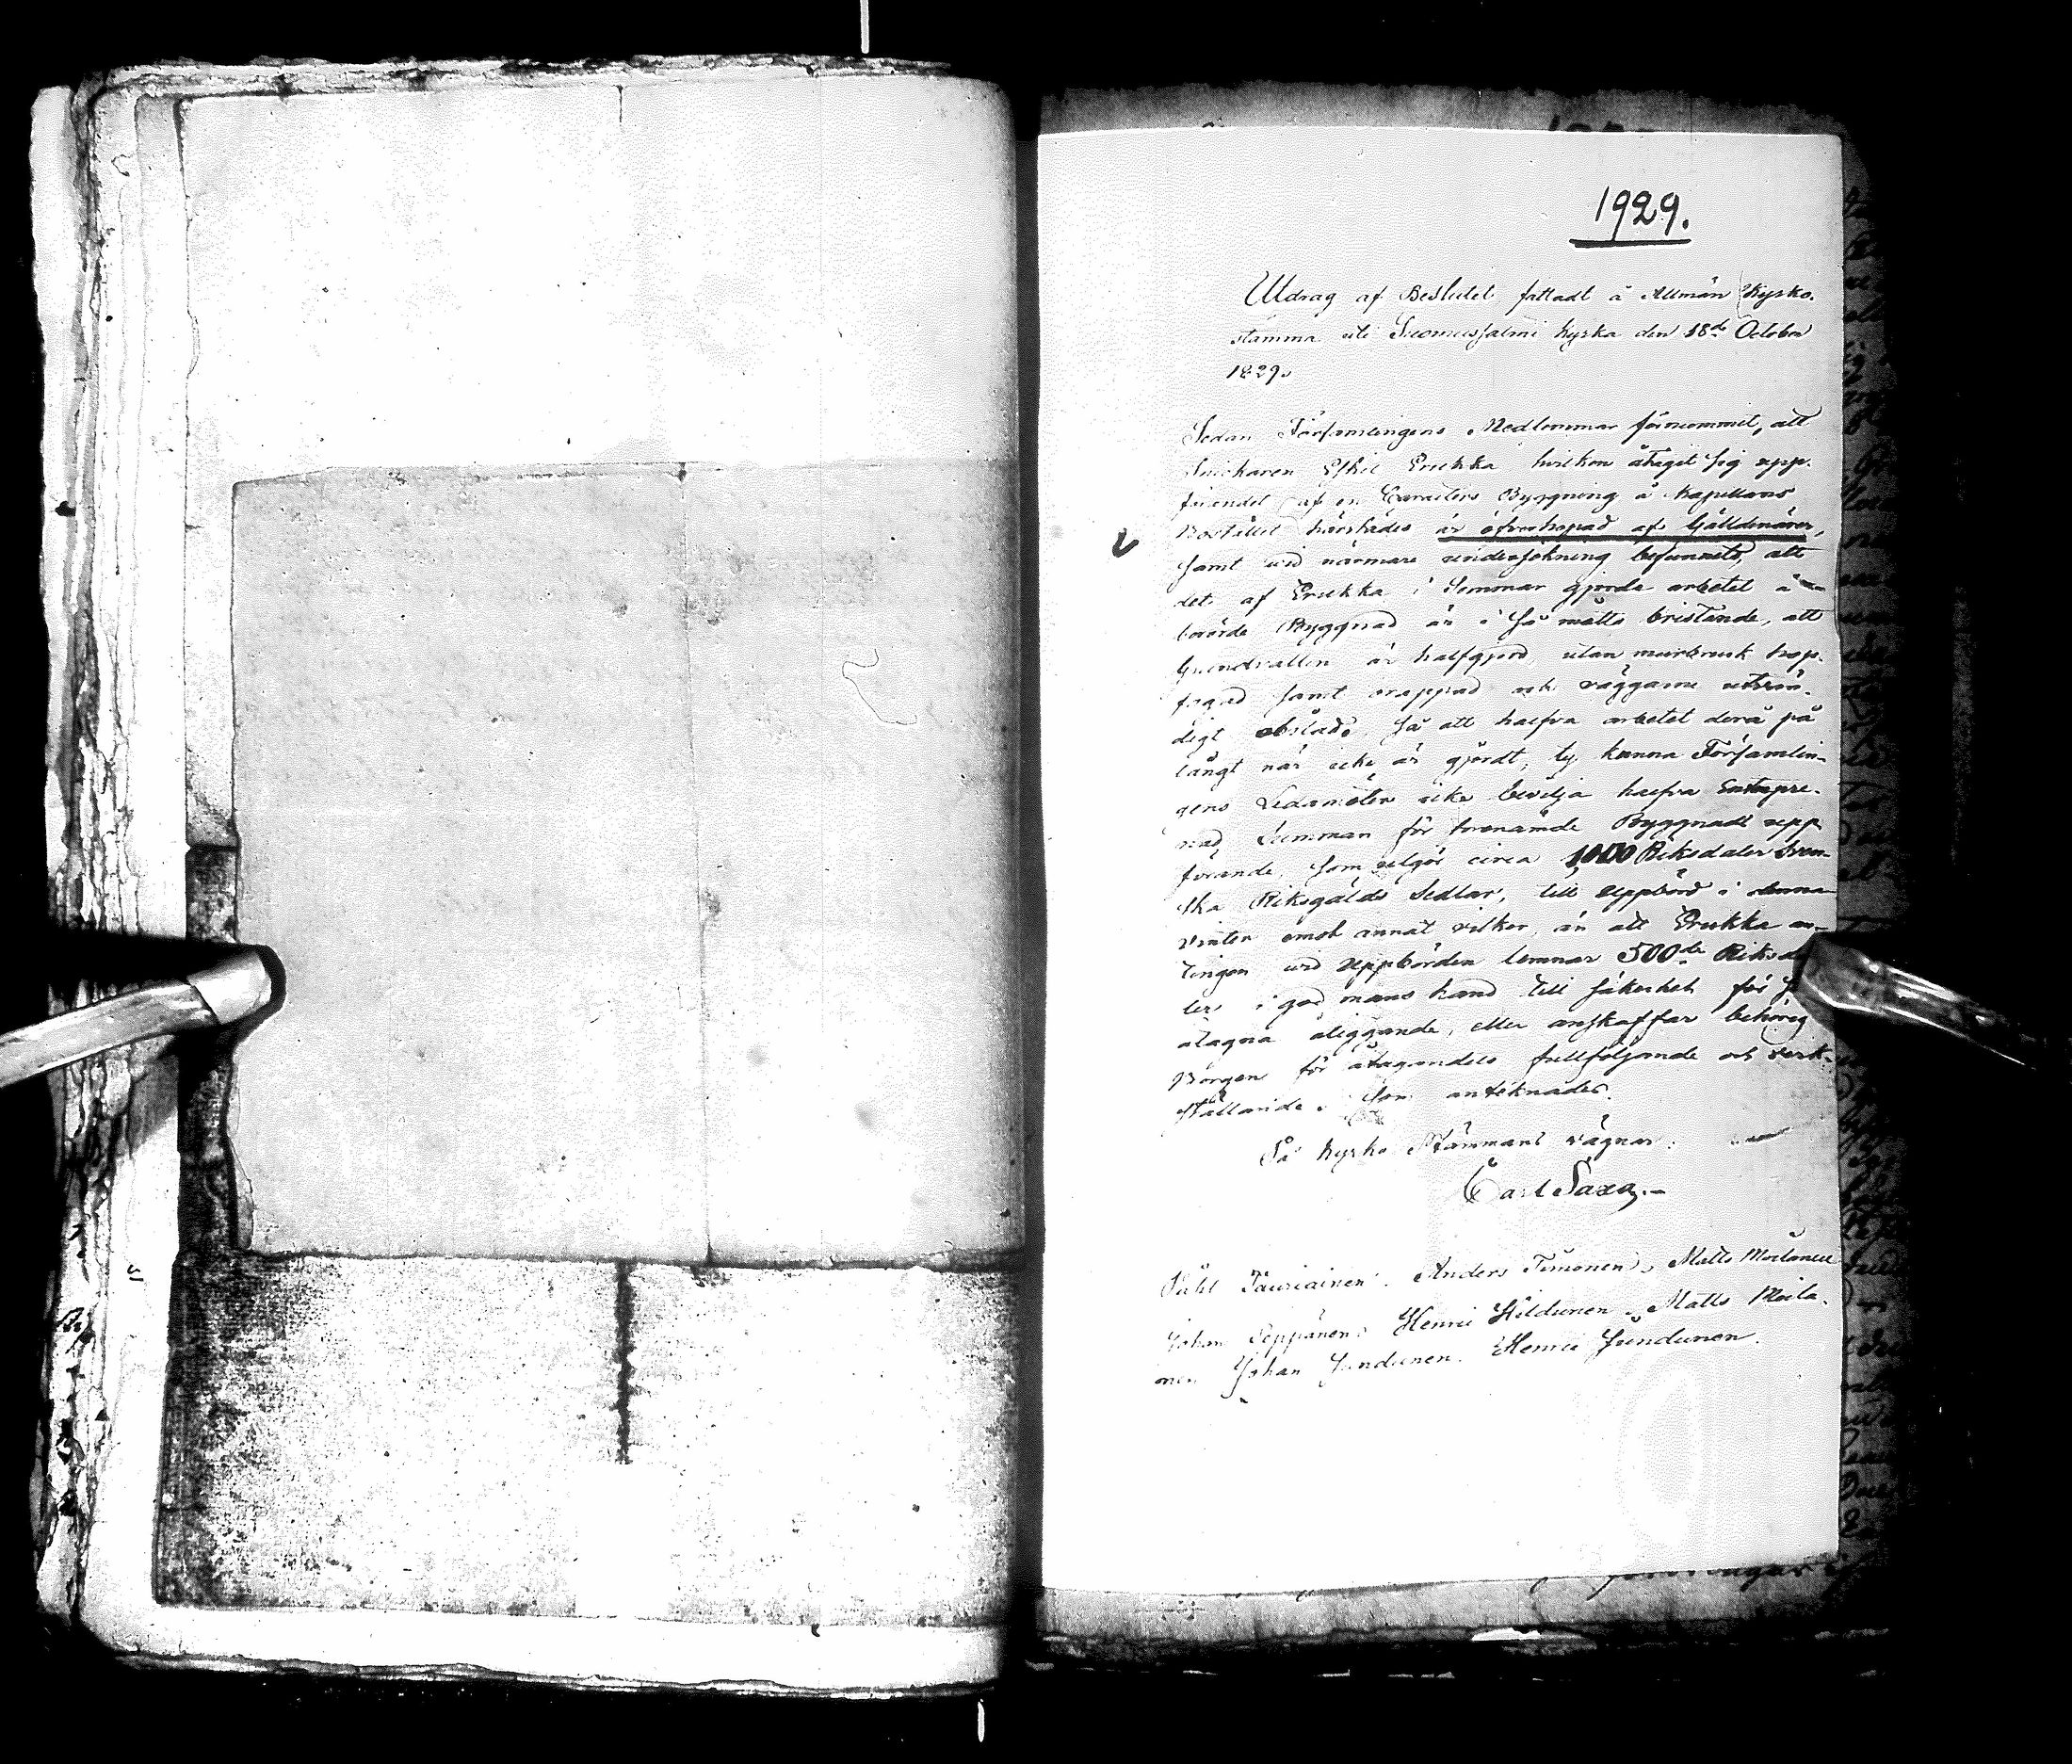 1929.
Utdrag af Beslutet fattadt å Allmän Kyrko-
stämma uti Suomusjalmi kyrka den 18de October
1829.
Sedan Församlingens Medlemmar förnummit, att
Snickaren Eskil Krukka hvilken åtagit sig upp-
förandet af en Caraiters Byggning å Kapellans
Bostället härstädes är öfverhopad af Gälldenärer,
samt wid närmare undersökning befunnits, att
det af Krukka i Sommar gjorda arbetet å
berörde Byggnad är i så måtto bristande, att
Grundvallen är halfgjord, utan murbruk hop-
fogad samt orappad och väggarne
digt så att halfva arbetet derå på
långt när icke är gjordt, ty kunna Församlin-
gens Ledamöter icke bevilja halfva Entrepre-
nad Summan för benämde Byggnads upp-
förande, som utgör circa 1000 Riksdaler Sven-
ska Riksgälds Sedlar, till uppbörd i denna
vinter emot annat vilkor, än att Krukka an-
tingen wid uppbörden lemnar 500de Riksda-
ler i god mans hand till säkerhet för
åtagna åliggande, eller anskaffar behörig
Borgen för åtagandets fullföljande och verk-
ställande. Som antéknades.
På Kyrko Stämmans vägnar:
Carl Saxa.
Påhl Tauriainen. Anders Timonen. Matts Moilanen
Johan Seppänen. Henric Hildunen. Matts Moila-
nen Johan Jundunen. Henric Jundunen.